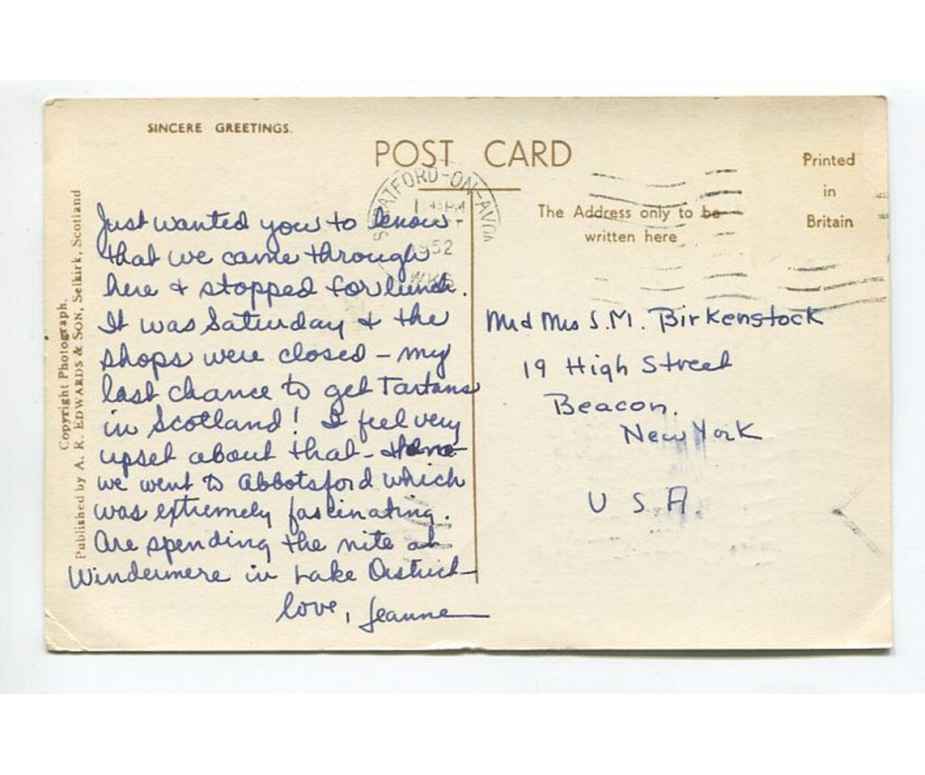 SINCERE GREETINGS.
POST CARD
Printed
in
Britain
The Address only to be
written here
STRATFORD-ON-AVON
1952
Copyright Photograph.
Published by A. R. EDWARDS & SON, Selkirk, Scotland
Just wanted you to know
that we came through
here & stopped for lunch.
It was Saturday & the
shops were closed - my
last chance to get Tartans
in Scotland! I feel very
upset about that -
we went to Abbotsford which
was extremely fascinating.
Are spending the nite at
Windermere in Lake District
Love, Jeanne
Mr & Mrs S.M. Birkenstock
19 High Street
Beacon,
New York
U S A.